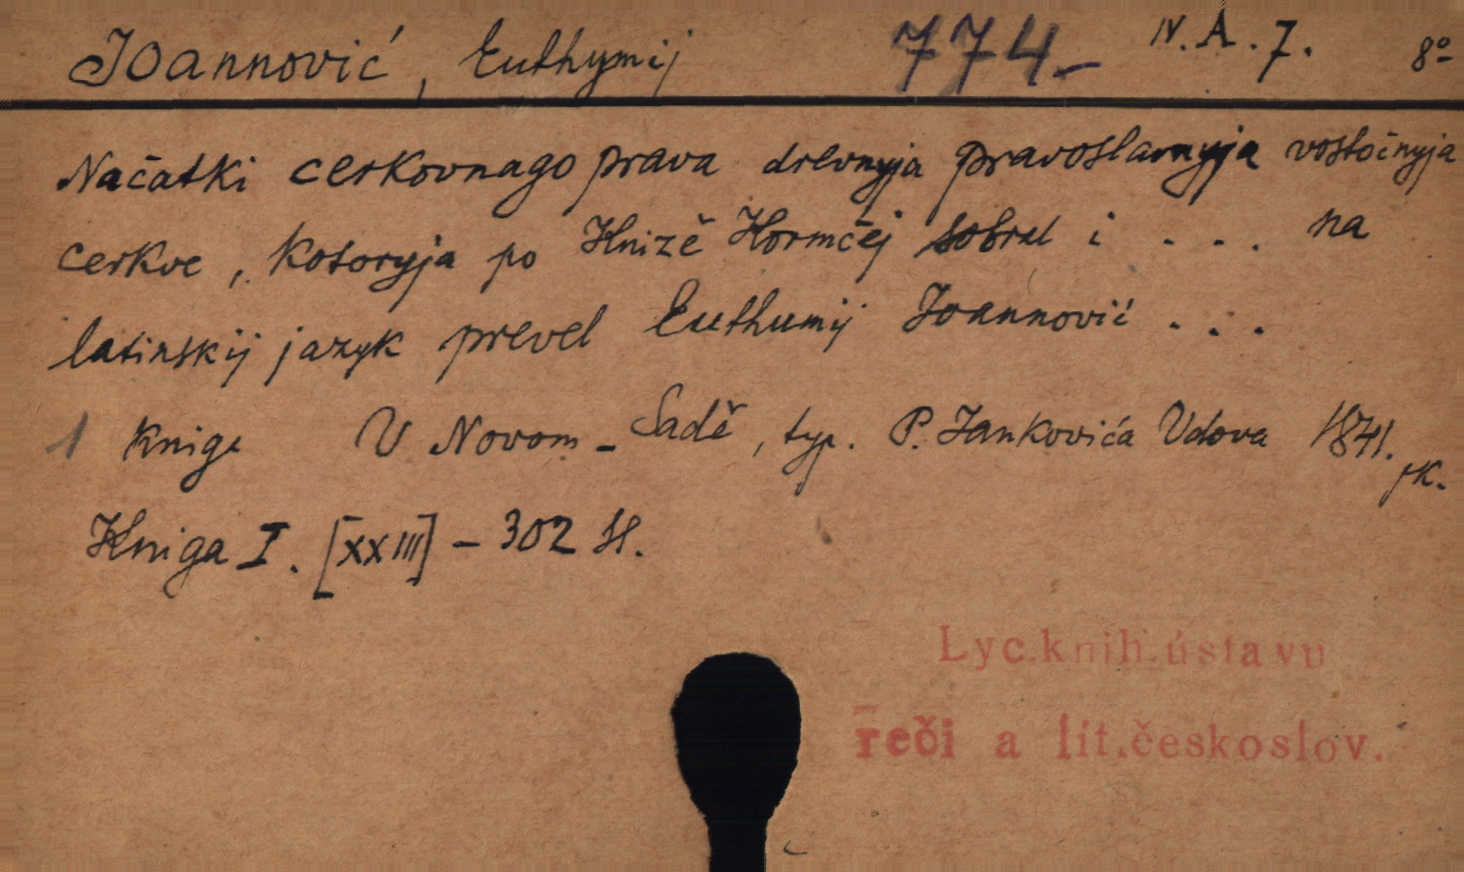 Joannović, Euthymij 774- IV. A. 7. 8º
Načatki cerkovnago prava drevnyja pravoslavnyja vostočnyja
cerkve, kotoryja po Knizě Kormčej sobral i . . . na
latinskij jazyk prevel Euthumij Joannović . . .
1 kniga V Novom-Sadě, typ. P. Jankovića Vdova 1841.
Kniga I. [XXIII] - 302 st.
Lyc.knih.ústavu
řeči a lit.českoslov.